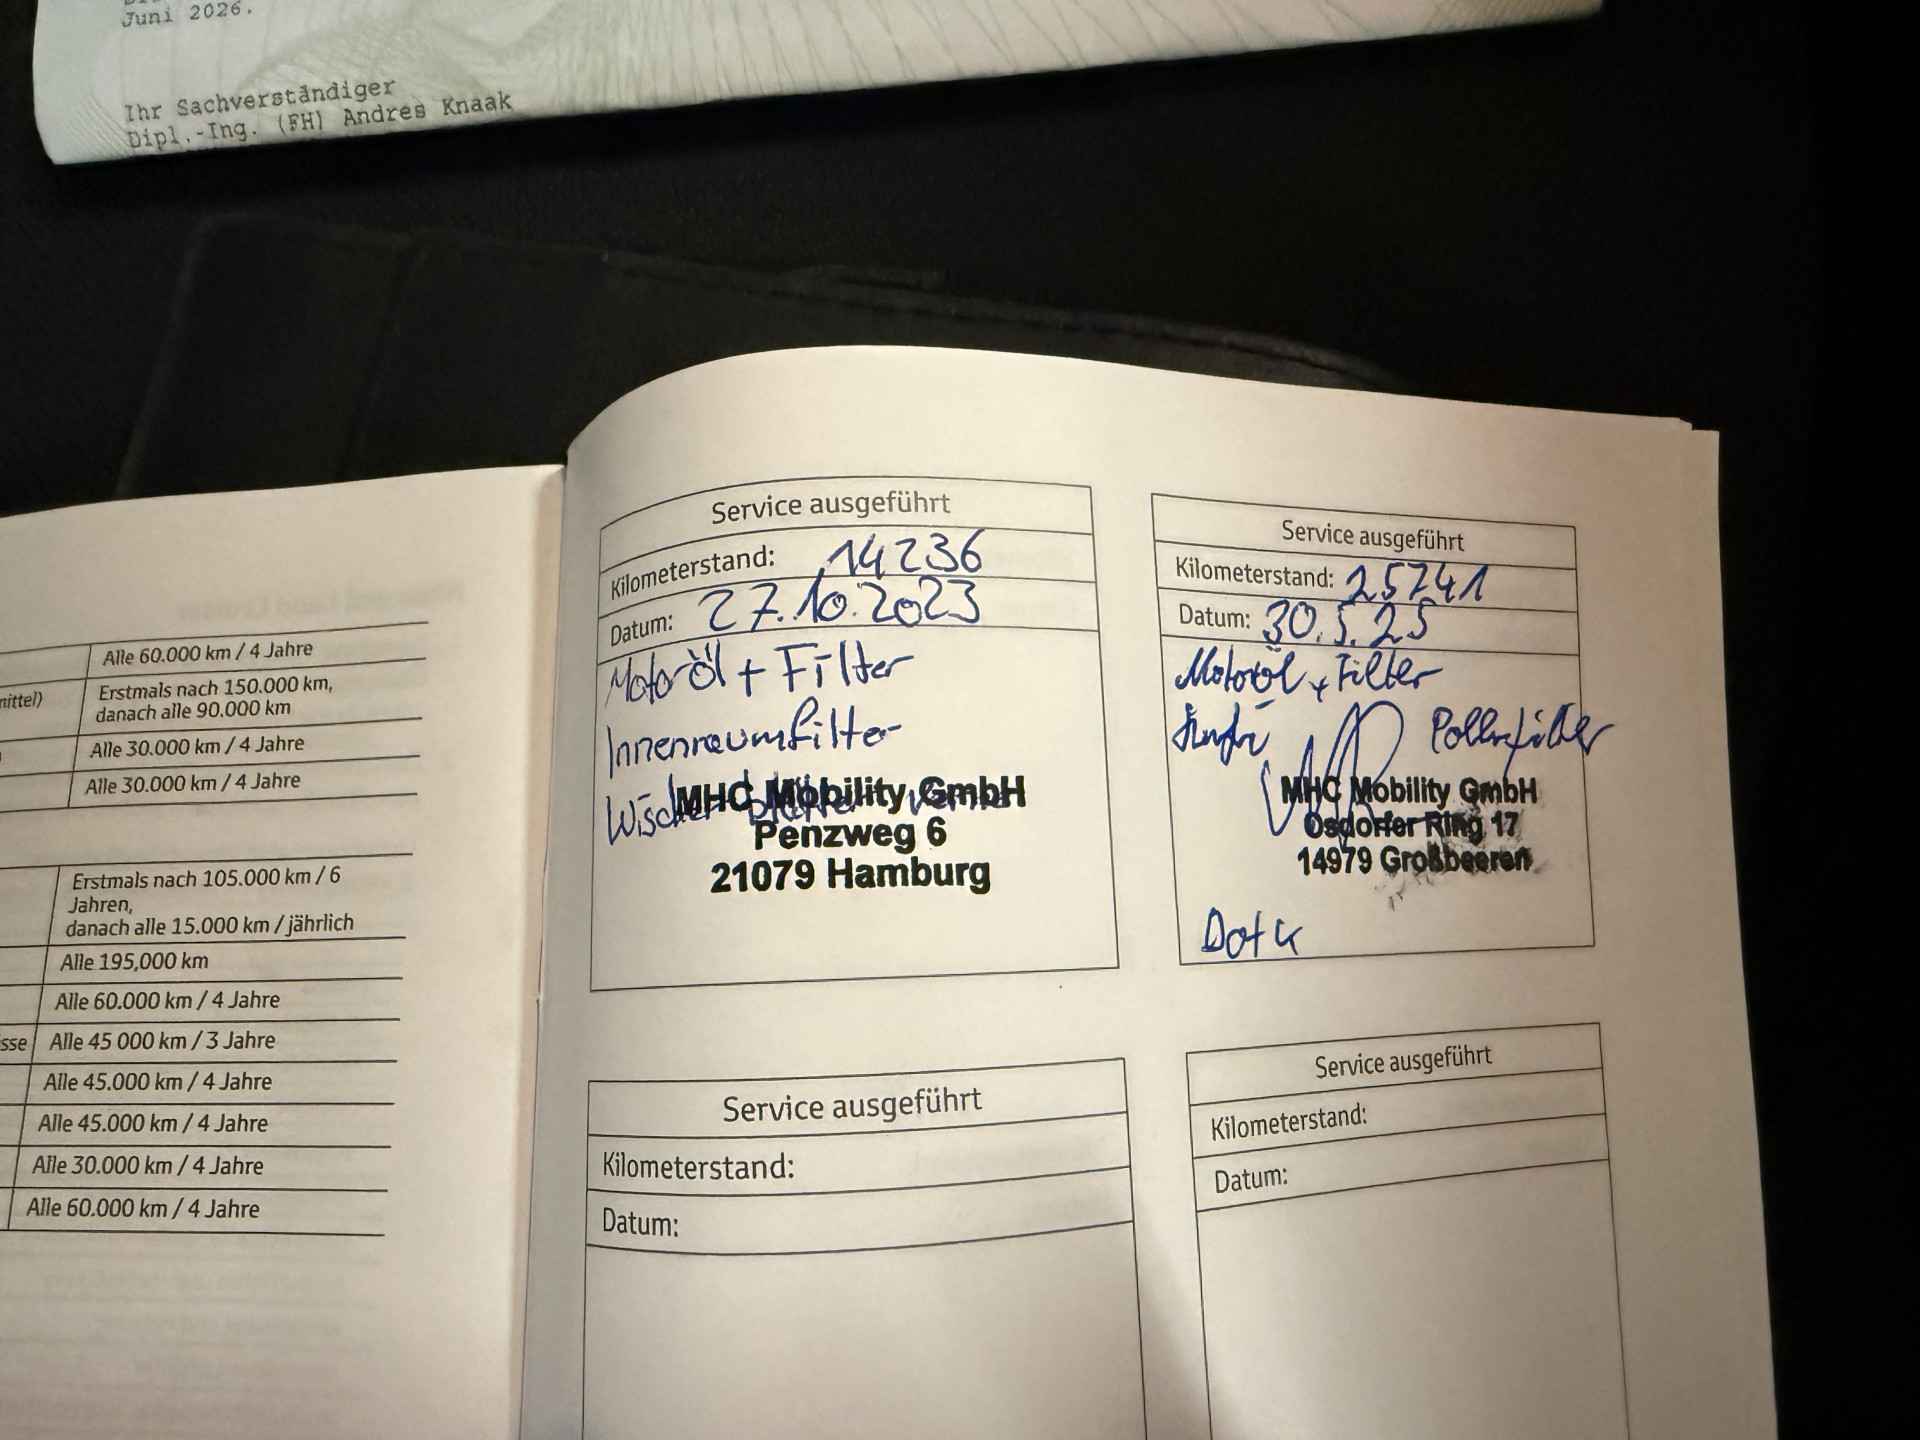 Juni 2026.
Ihr Sachverständiger
Dipl.-Ing. (FH) Andres Knaak
Alle 60.000 km / 4 Jahre
mittel)
Erstmals nach 150.000 km,
danach alle 90.000 km
Alle 30.000 km / 4 Jahre
Alle 30.000 km / 4 Jahre
Erstmals nach 105.000 km / 6
Jahren,
danach alle 15.000 km / jährlich
Alle 195,000 km
Alle 60.000 km / 4 Jahre
sse
Alle 45 000 km / 3 Jahre
Alle 45.000 km / 4 Jahre
Alle 45.000 km / 4 Jahre
Alle 30.000 km / 4 Jahre
Alle 60.000 km / 4 Jahre
Service ausgeführt
Kilometerstand: 14236
Datum: 27.10.2023
Motoröl + Filter
Innenraumfilter
Wischerblätter
MHC Mobility GmbH
Penzweg 6
21079 Hamburg
Service ausgeführt
Kilometerstand: 25741
Datum: 30.5.25
Motoröl + Filter
Pollenfilter
MHC Mobility GmbH
Osdorfer Ring 17
14979 Großbeeren
Dot 4
Service ausgeführt
Kilometerstand:
Datum:
Service ausgeführt
Kilometerstand:
Datum: